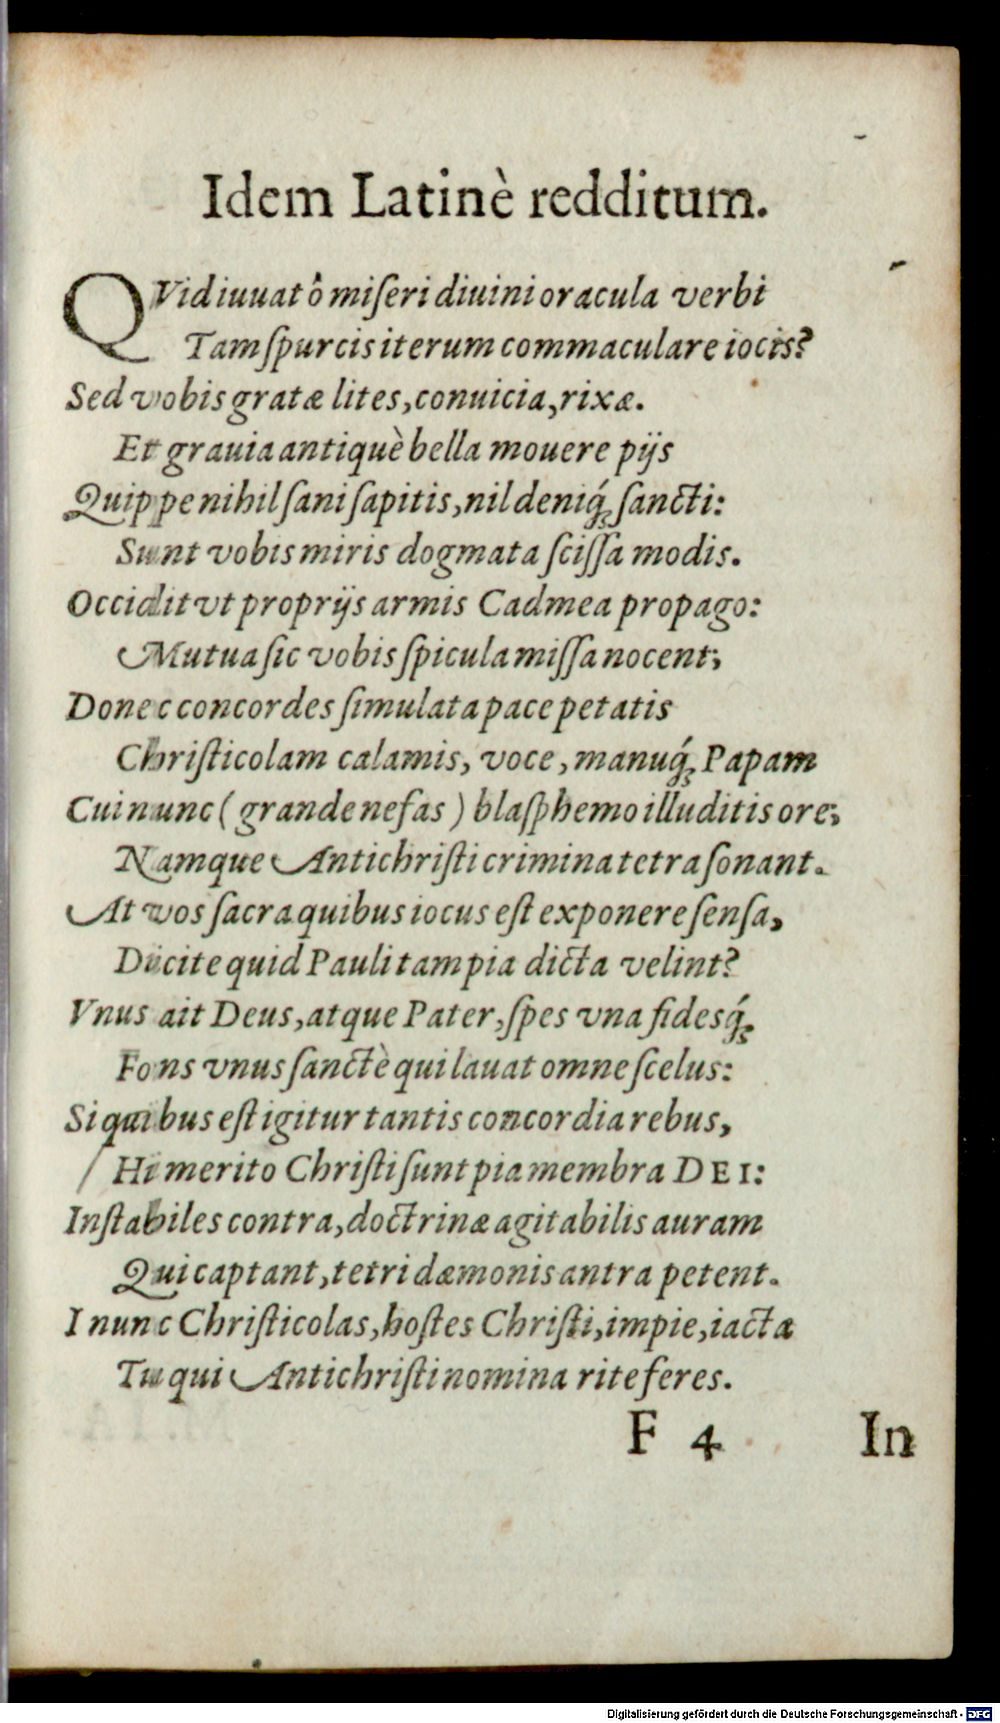 Idem Latinè redditum.
QVid iuuat ô miſeri diuini oracula verbi
Tam ſpurcis iterum commaculare iocis?
Sed vobis gratæ lites, conuicia, rixæ.
Et grauia antiquè bella mouere pijs
Quippe nihil ſani ſapitis, nil deniq́; ſancti:
Sunt vobis miris dogmata ſciſſa modis.
Occidit vt proprijs armis Cadmea propago:
Mutua ſic vobis ſpicula miſſa nocent;
Donec concordes ſimulata pace petatis
Chriſticolam calamis, voce, manuq́; Papam
Cui nunc (grande nefas) blaſphemo illuditis ore;
Namque Antichriſti crimina tetra ſonant.
At vos ſacra quibus iocus eſt exponere ſenſa,
Dicite quid Pauli tam pia dicta velint?
Vnus ait Deus, atque Pater, ſpes vna fidesq́;
Fons vnus ſanctè qui lauat omne ſcelus:
Si quibus eſt igitur tantis concordia rebus,
Hi merito Chriſti ſunt pia membra DEI:
Inſtabiles contra, doctrinæ agitabilis auram
Qui captant, tetri dæmonis antra petent.
I nunc Chriſticolas, hoſtes Chriſti, impie, iacta
Tu qui Antichriſti nomina rite feres.
F 4 In
Digitalisierung gefördert durch die Deutsche Forschungsgemeinschaft - DFG